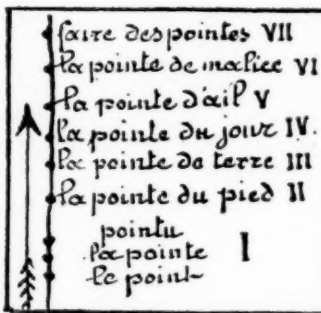 faire des pointes VII
la pointe de malice VI
la pointe d'ail V
la pointe du jour IV.
la pointe de terre III
la pointe du pied II
pointu
la pointe I
le point